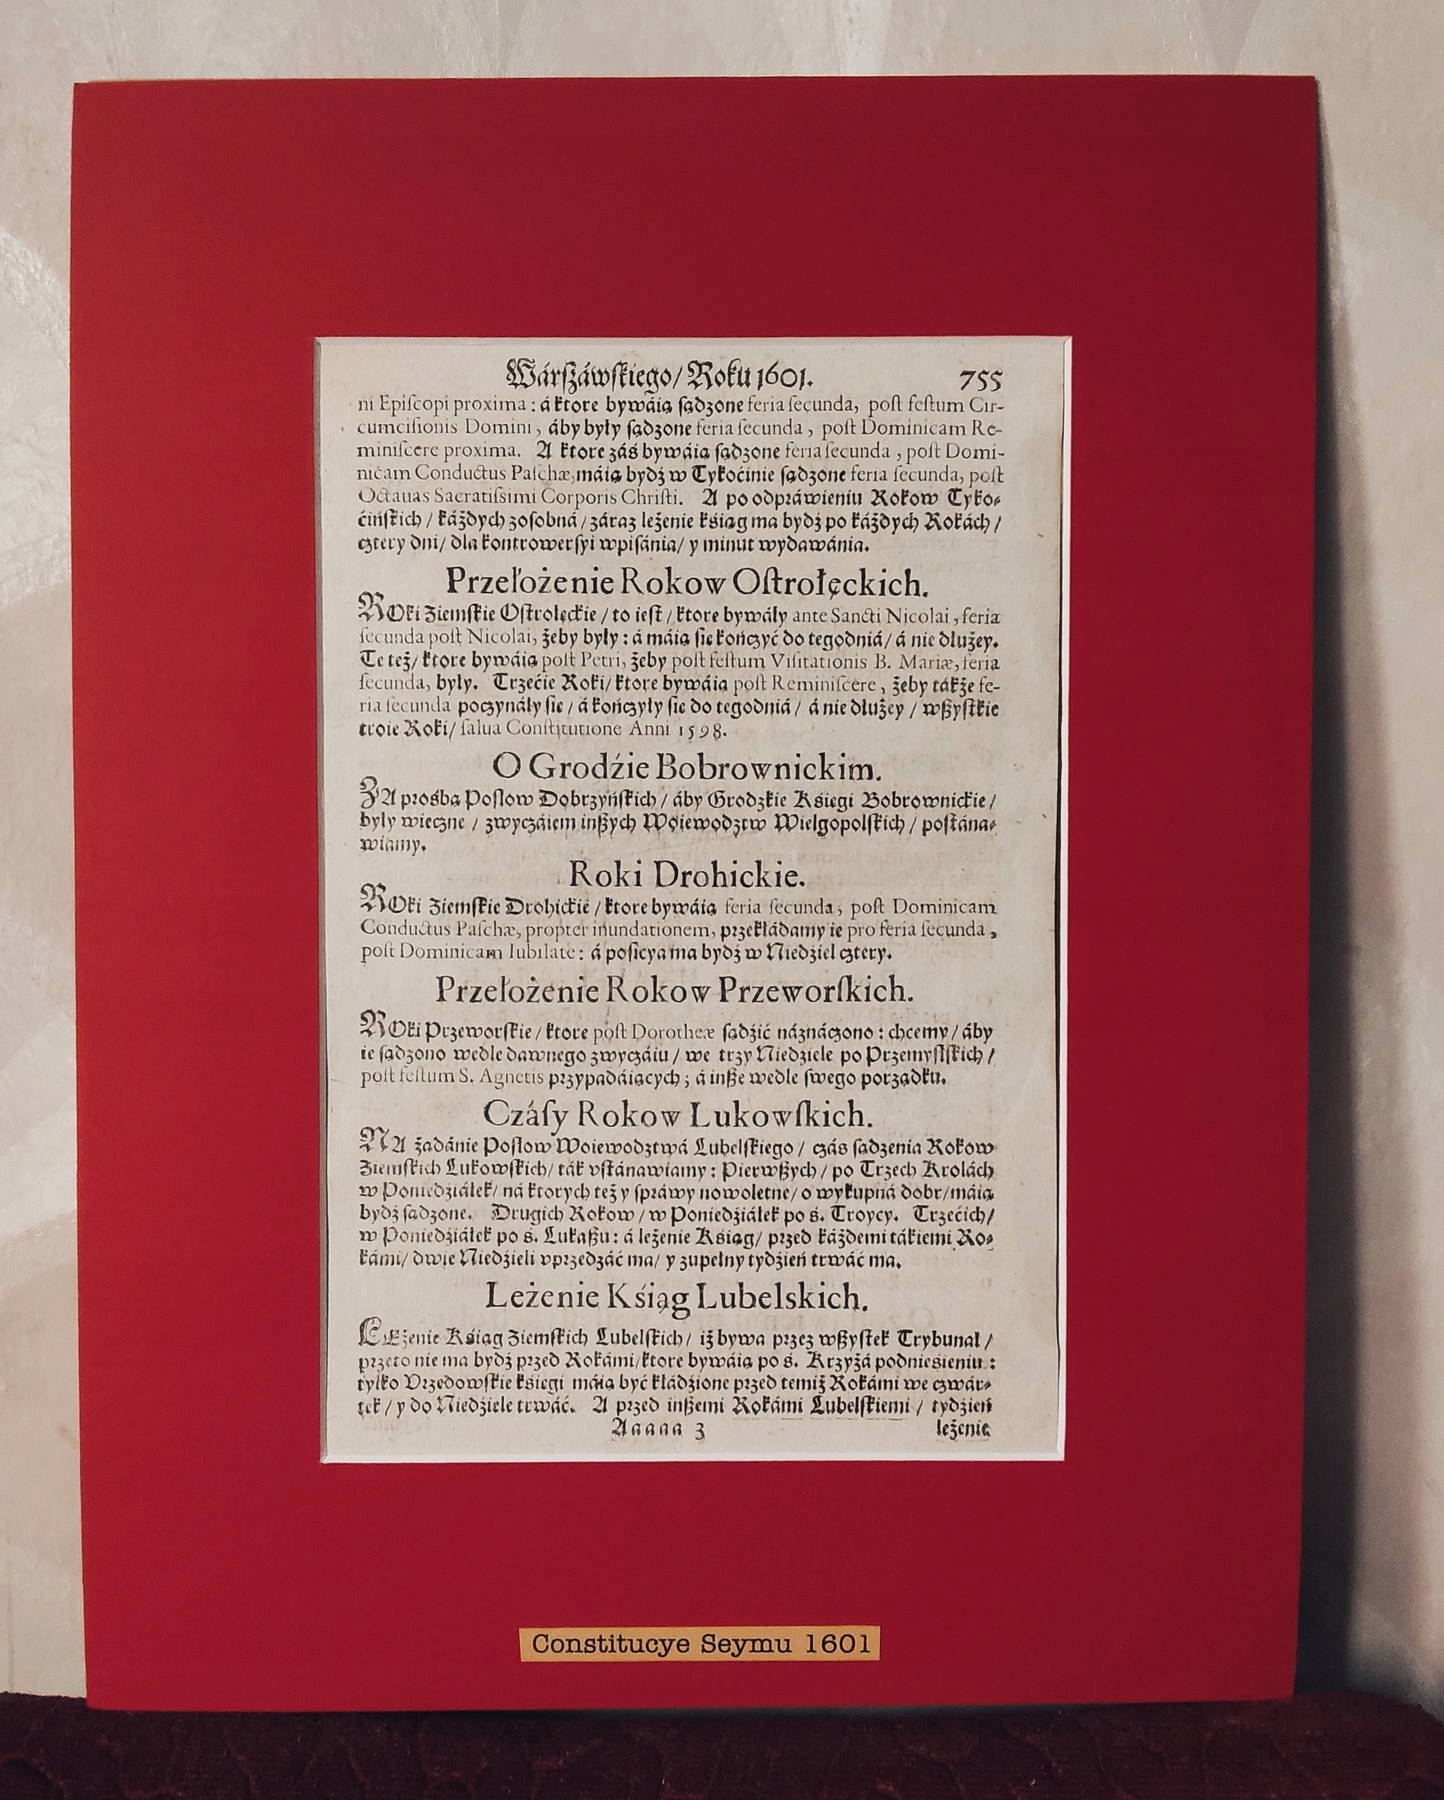 Wárszáwskiego/ Roku 1601. 755
ni Episcopi proxima : á ktore bywáią sądzone feria secunda, post festum Cir-
cumcisionis Domini, áby były sądzone feria secunda, post Dominicam Re-
miniscere proxima. A ktore záś bywáią sądzone feria secunda, post Domi-
nicam Conductus Paschæ, máią bydź w Tykoćinie sądzone feria secunda, post
Octauas Sacratissimi Corporis Christi. A po odpráwieniu Rokow Tyko-
ćińskich / káżdych zosobná / záraz leżenie kśiąg ma bydź po káżdych Rokách /
cztery dni/ dla kontrowersyi wpisánia/ y minut wydawánia.
Przełożenie Rokow Ostrołęckich.
ROki Ziemskie Ostrołęckie / to iest / ktore bywáły ante Sancti Nicolai, feria
secunda post Nicolai, żeby były : á máią się kończyć do tegodniá/ á nie dłużey.
Te też/ ktore bywáią post Petri, żeby post festum Visitationis B. Mariæ, feria
secunda, były. Trzećie Roki/ ktore bywáią post Reminiscere, żeby tákże fe-
ria secunda poczynáły się / á kończyły się do tegodniá / á nie dłużey / wszystkie
troie Roki/ salua Constitutione Anni 1598.
O Grodźie Bobrownickim.
ZA prośbą Posłow Dobrzyńskich / áby Grodzkie Kśięgi Bobrownickie /
były wieczne / zwyczáiem inszych Woiewodztw Wielgopolskich / postána-
wiamy.
Roki Drohickie.
ROki Ziemskie Drohickie / ktore bywáią feria secunda, post Dominicam
Conductus Paschæ, propter inundationem, przekłádamy ie pro feria secunda,
post Dominicam Iubilate : á posicya ma bydź w Niedźiel cztery.
Przełożenie Rokow Przeworskich.
ROki Przeworskie / ktore post Dorotheæ sądźić náznáczono : chcemy / áby
ie sądzono wedle dawnego zwyczáiu / we trzy Niedźiele po Przemyślskich /
post festum S. Agnetis przypadáiących ; á insze wedle swego porządku.
Czásy Rokow Lukowskich.
NA żądánie Posłow Woiewodztwá Lubelskiego / czás sądzenia Rokow
Ziemskich Lukowskich/ ták vstánawiamy : Pierwszych / po Trzech Krolách
w Poniedźiáłek/ ná ktorych też y spráwy nowoletne/ o wykupná dobr/ máią
bydź sądzone. Drugich Rokow / w Poniedźiáłek po ś. Troycy. Trzećich/
w Poniedźiáłek po ś. Lukaszu : á leżenie Kśiąg/ przed káżdemi tákiemi Ro-
kámi/ dwie Niedźieli vprzedzáć ma/ y zupełny tydźień trwáć ma.
Leżenie Kśiąg Lubelskich.
LEżenie Kśiąg Ziemskich Lubelskich/ iż bywa przez wszystek Trybunał /
przeto nie ma bydź przed Rokámi/ ktore bywáią po ś. Krzyżá podniesieniu :
tylko Vrzędowskie kśięgi máią być kłádźione przed temiż Rokámi we czwár-
tek / y do Niedźiele trwáć. A przed inszemi Rokámi Lubelskiemi / tydźień
Aaaaa 3 leżenie
Constitucye Seymu 1601